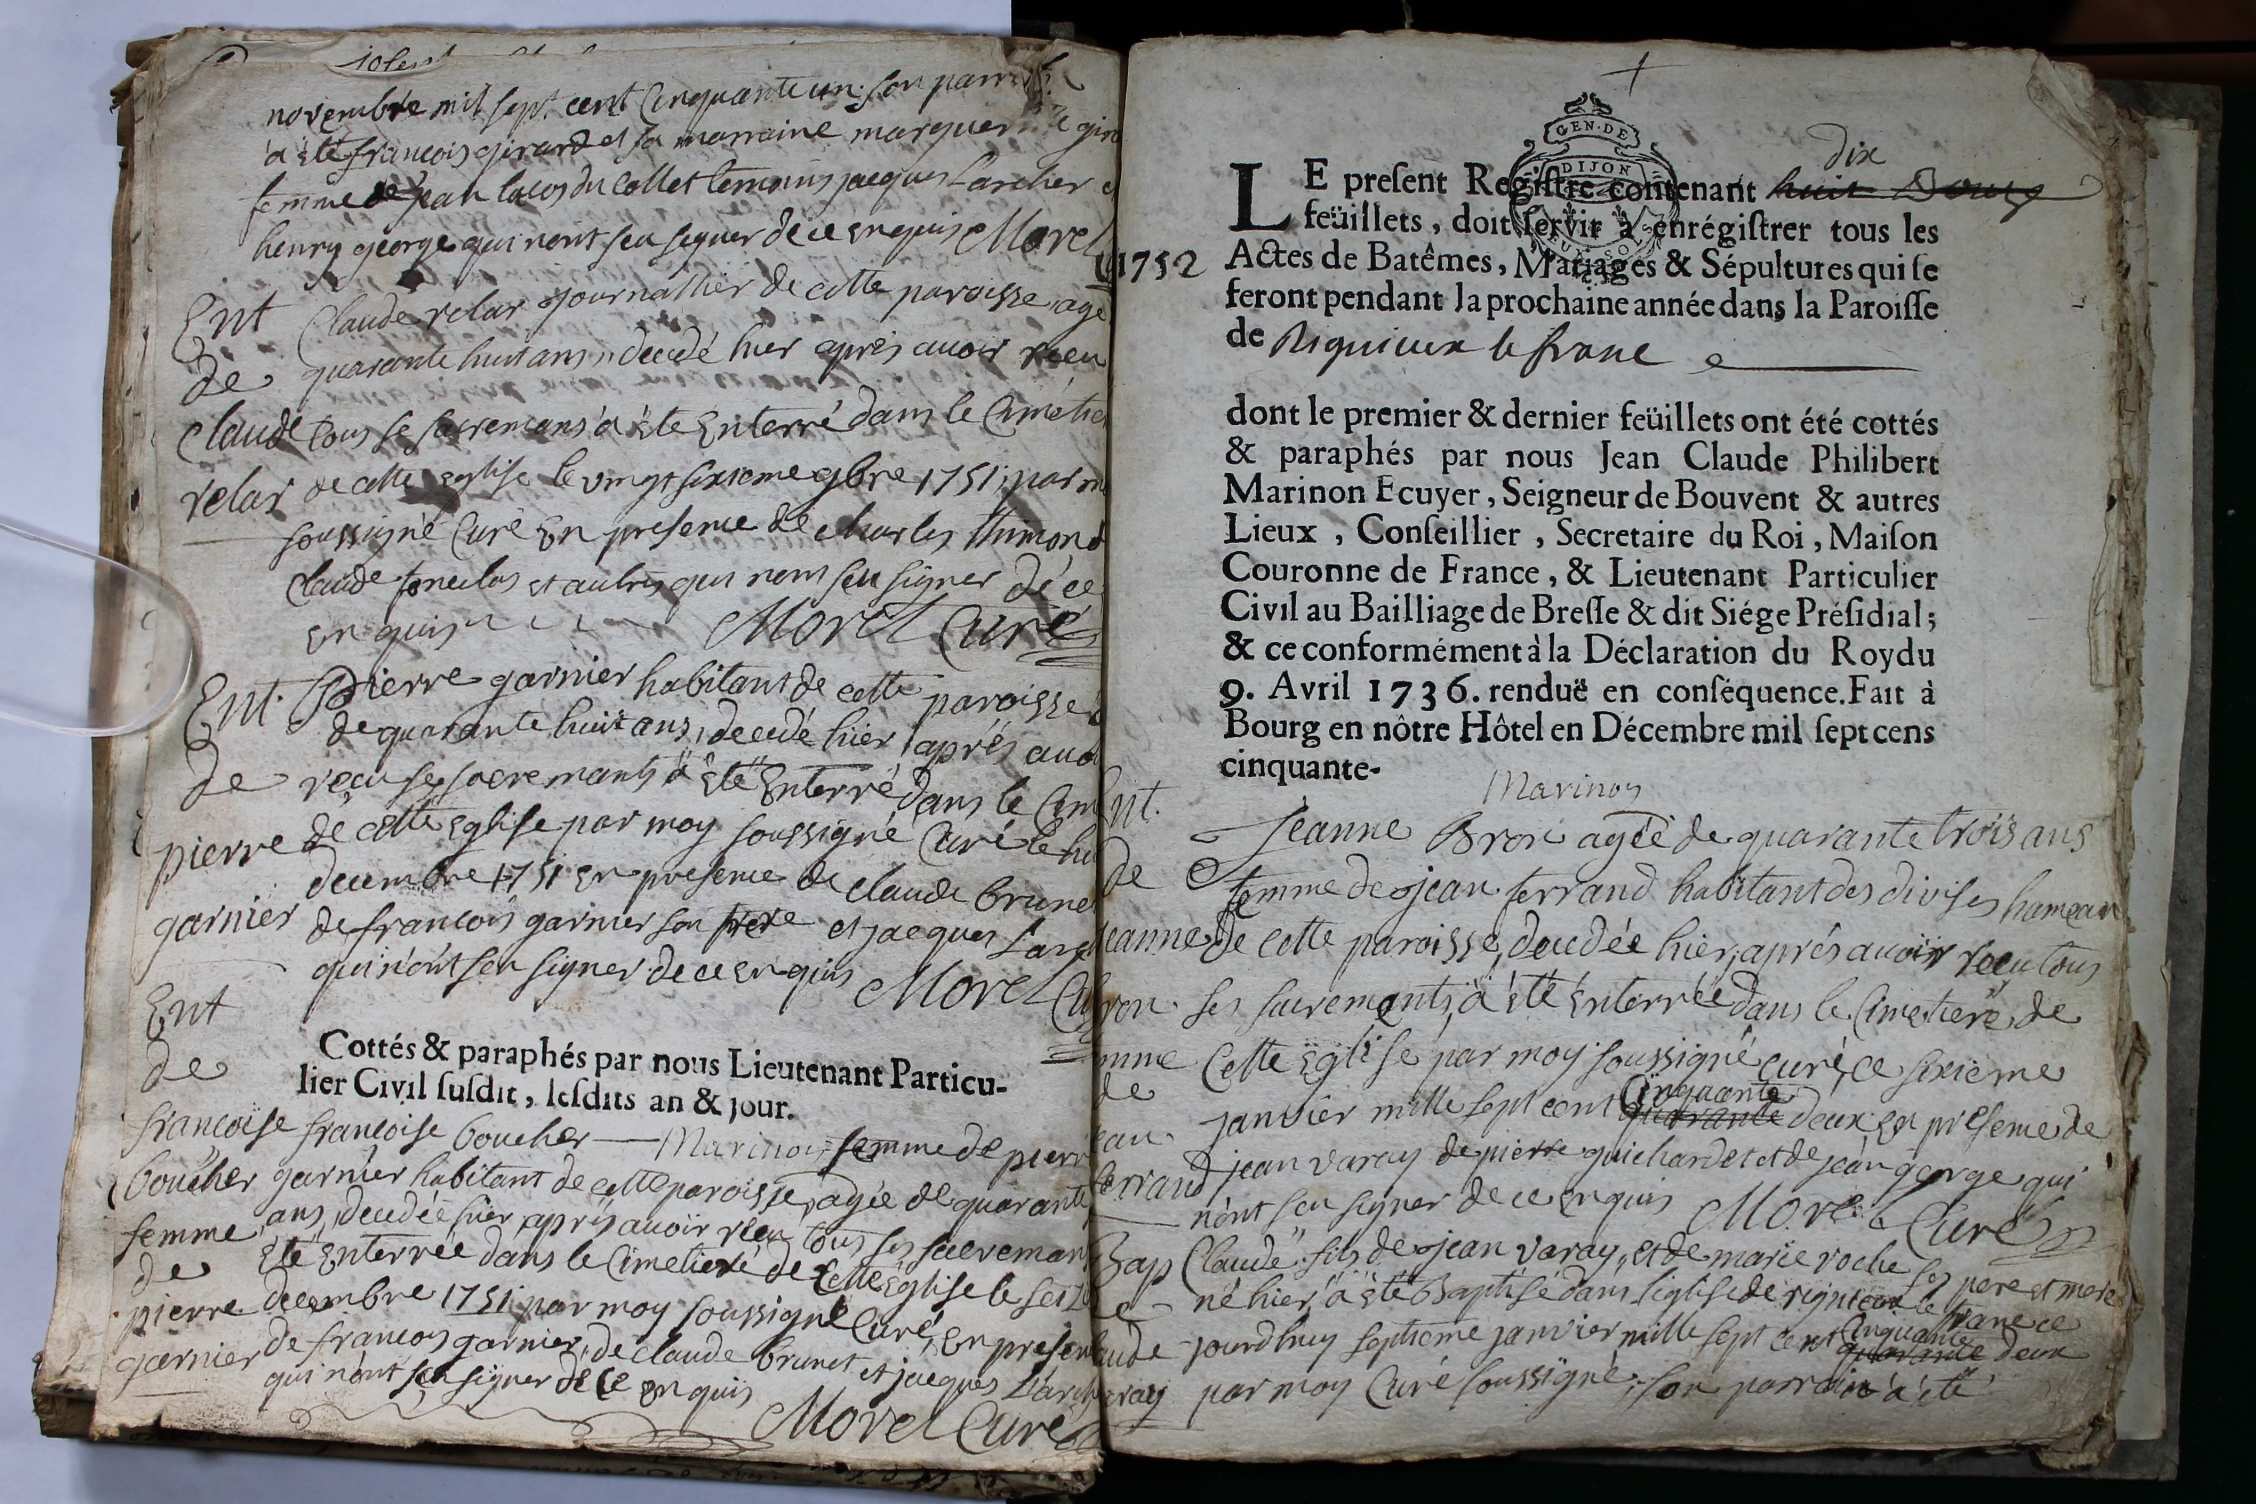 novembre mil sept cent Cinquante un. son parrain
a été francois girard et sa marraine marguerite
femme de jean du Collet temoins jacques Larcher
henry george qui nont seu signer de ce enquis Morel
Ent Claude velar journallier de cette paroisse agé
de quarante huit ans, decedé hier aprés avoir receu
Claude tous se sacremans a été Enterré dans le Cimetie
velar de cette Eglise le vingt sixieme 9bre 1751, par
soussigné Curé En presence de Charles
Claude et autres qui nont seu signer de ce
enquis Morel Curé
Ent. Pierre garnier habitant de cette paroisse
de quarante huit ans, decedé hier aprés avoi
de reçu ses sacremants a été Enterré dans le Cim
pierre de cette Eglise par moy soussigné Curé le
decembre 1751 en presence de claude brunet
garnier de francois garnier son frere et jacques Larch
qui n'ont seu signer de ce enquis Morel Cu
Ent
de
Cottés & paraphés par nous Lieutenant Particu-
lier Civil susdit, lesdits an & jour.
francoise francoise boucher Marinon femme de pierre
boucher garnier habitant de cette paroisse, agée de quarante
femme ans, decedée hier aprés avoir receu tous ses sacremans
de été Enterrée dans le Cimetiere de cette Eglise le
pierre decembre 1751 par moy soussigné Curé, en presen
garnier de francois garnier, de claude brunet et jacques Larch
qui n'ont seu signer de ce enquis
Morel Curé
GEN. DE
DIJON
dix
LE present Registre contenant huit
feüillets, doit servir à enrégistrer tous les
1752 Actes de Batêmes, Mariages & Sépultures qui se
feront pendant la prochaine année dans la Paroisse
de Rignieux le franc
dont le premier & dernier feüillets ont été cottés
& paraphés par nous Jean Claude Philibert
Marinon Ecuyer, Seigneur de Bouvent & autres
Lieux, Conseillier, Secretaire du Roi, Maison
Couronne de France, & Lieutenant Particulier
Civil au Bailliage de Bresse & dit Siége Présidial;
& ce conformément à la Déclaration du Roy du
9. Avril 1736. renduë en conséquence. Fait à
Bourg en nôtre Hôtel en Décembre mil sept cens
cinquante-
Marinon
Ent. Jeanne Bron agée de quarante trois ans
de femme de jean ferrand habitant des divises hameau
jeanne de cette paroisse, decedée hier, aprés avoir receu tous
Bron ses sacremants, a été Enterrée dans le Cimetiere de
femme Cette Eglise par moy soussigné curé, ce sixieme
de Cinquante
jean janvier mille sept cent quarante deux en presence de
ferrand jean varay de pierre guichardet et de jean george qui
n'ont seu signer de ce enquis Morel Curé
Bap Claude fils de jean varay, et de marie roche ses pere et mere
de né hier, a été Baptisé dans l'eglise de rignieux le franc ce
Cinquante
claude jourdhuy septieme janvier mille sept cent quarante deux
varay par moy Curé soussigné, son parrain a été